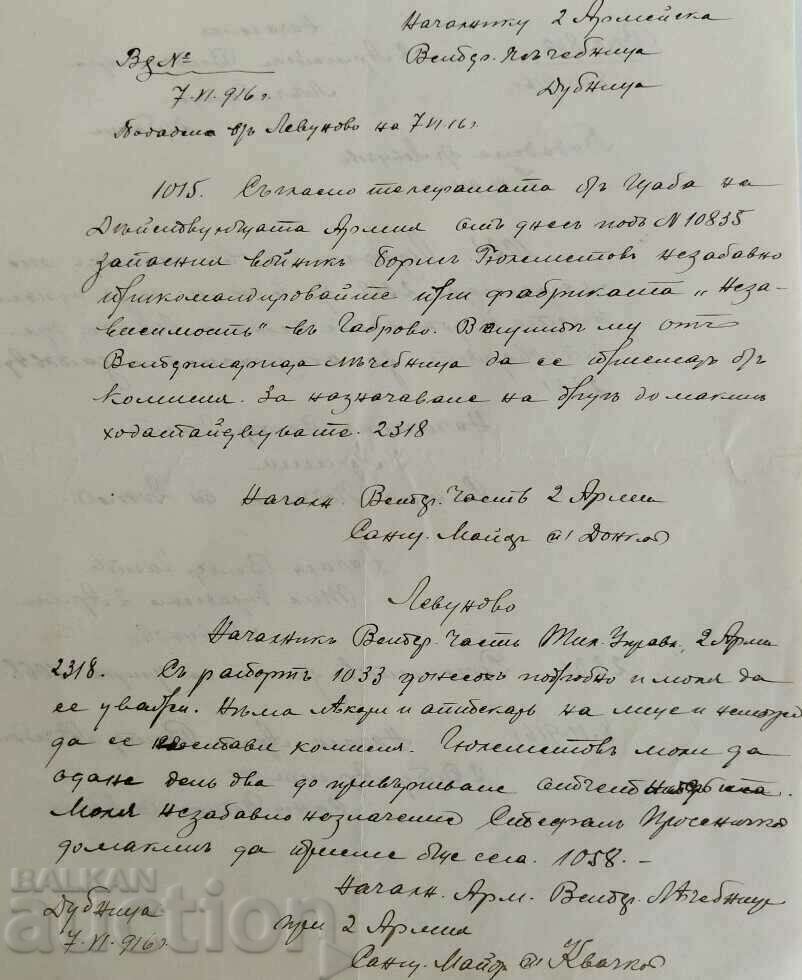 Началнику 2 Армейска
Ветер. Лѣчебница
Дубница
Вд №
7.VI.916 г.
Подадена въ Левуново на 7 VI 16 г.
1015. Съгласно телеграмата въ Щаба на
Дѣйствующата Армия отъ днесъ подъ N 10835
запасния войникъ Борисъ Гюлеметовъ незабавно
прикомандировайте при фабриката „Неза-
висимость“ въ Габрово.
Ветеринарната лѣчебница да се въ
комисия. За назначаване на другъ домакинъ
ходатайдвувате. 2318
Началн. Ветер. Часть 2 Армия
Сан. Майор п/ Донков
Левуново
Началникъ Ветер. Часть Тил. Управл. 2 Арми
2318. Съ рапортъ 1033 донесохъ подробно и моля да
се уважи. Нѣма лѣкари и аптекарь на лице и
да се състави комисия. Гюлеметовъ моли да
остане день два до привършване
Моля незабавно назначение Стефанъ
домакинъ да приеме бше села. 1058. –
Началн. Арм. Ветер. Лѣчебница
при 2 Армия
Сан. Майор п/ Квачков
Дубница
7.VI.916 г.
BALKAN
auction